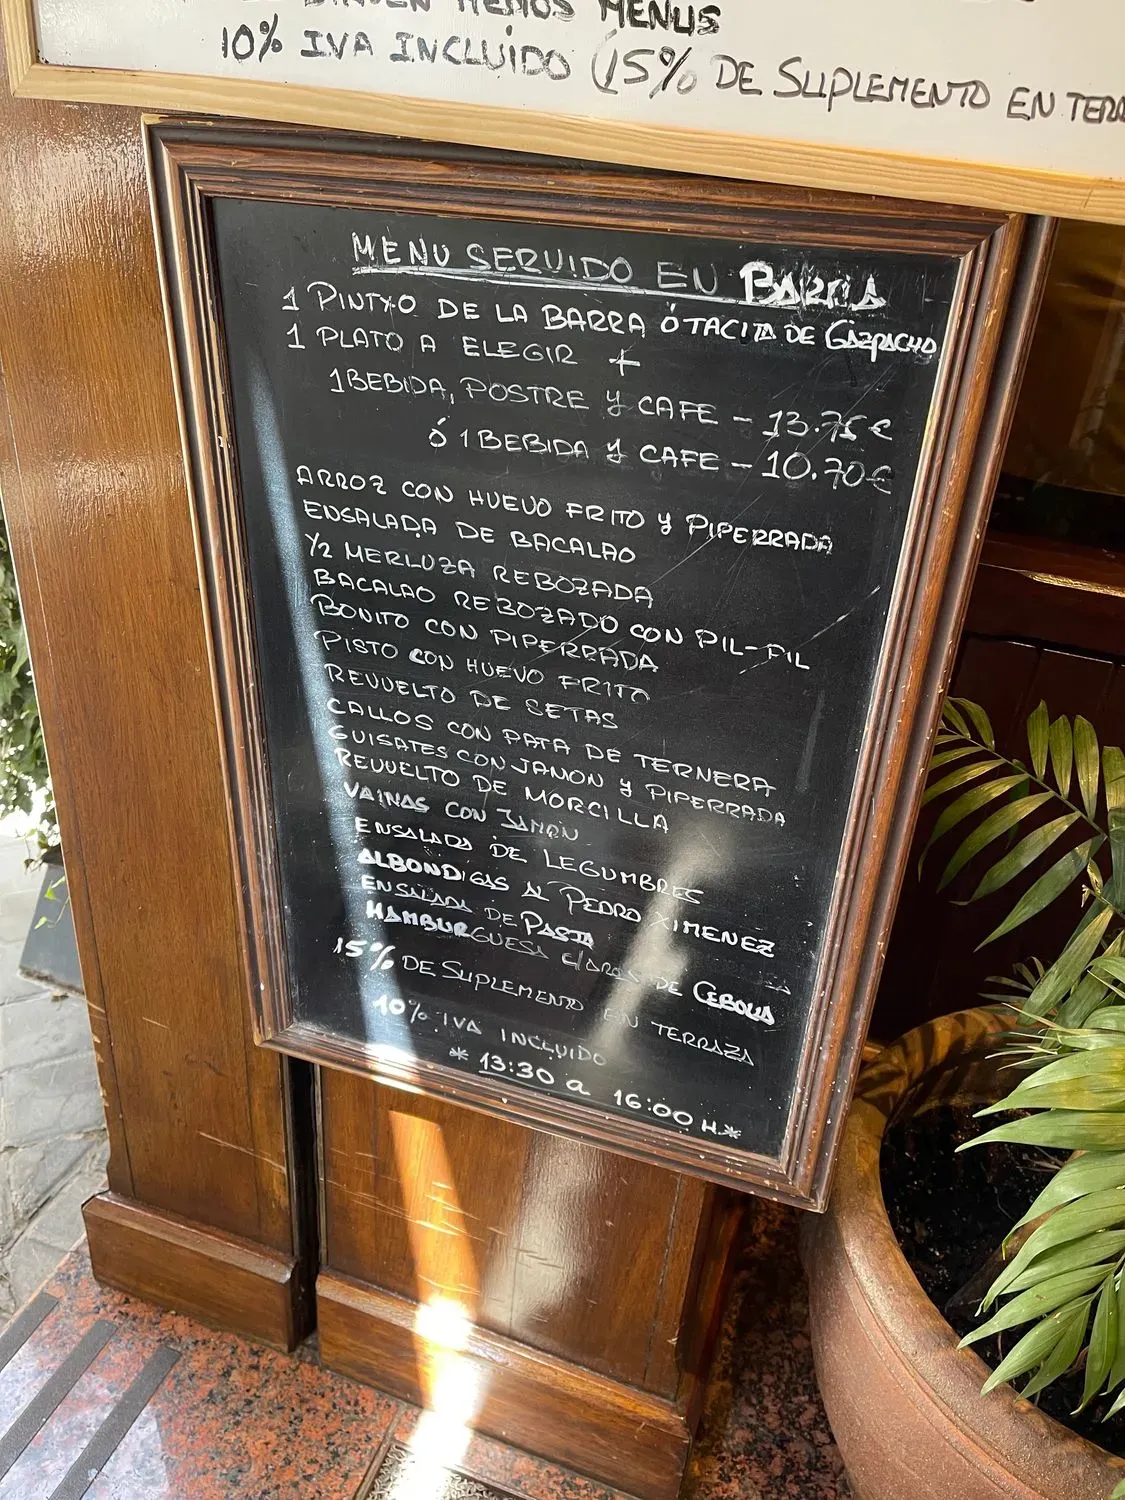 MENOS MENUS
10% IVA INCLUIDO (15% DE SUPLEMENTO EN TERR
MENU SERVIDO EN BARRA
1 PINTXO DE LA BARRA Ó TACITA DE GAZPACHO
1 PLATO A ELEGIR +
1 BEBIDA, POSTRE Y CAFE - 13.75€
Ó 1 BEBIDA Y CAFE - 10.70€
ARROZ CON HUEVO FRITO Y PIPERRADA
ENSALADA DE BACALAO
1/2 MERLUZA REBOZADA
BACALAO REBOZADO CON PIL-PIL
BONITO CON PIPERRADA
PISTO CON HUEVO FRITO
REVUELTO DE SETAS
CALLOS CON PATA DE TERNERA
GUISATES CON JAMON Y PIPERRADA
REVUELTO DE MORCILLA
VAINAS CON JAMON
ENSALADA DE LEGUMBRES
ALBONDIGAS AL PEDRO XIMENEZ
ENSALADA DE PASTA
HAMBURGUESA C/AROS DE CEBOLLA
15% DE SUPLEMENTO EN TERRAZA
10% IVA INCLUIDO
* 13:30 a 16:00 H.*